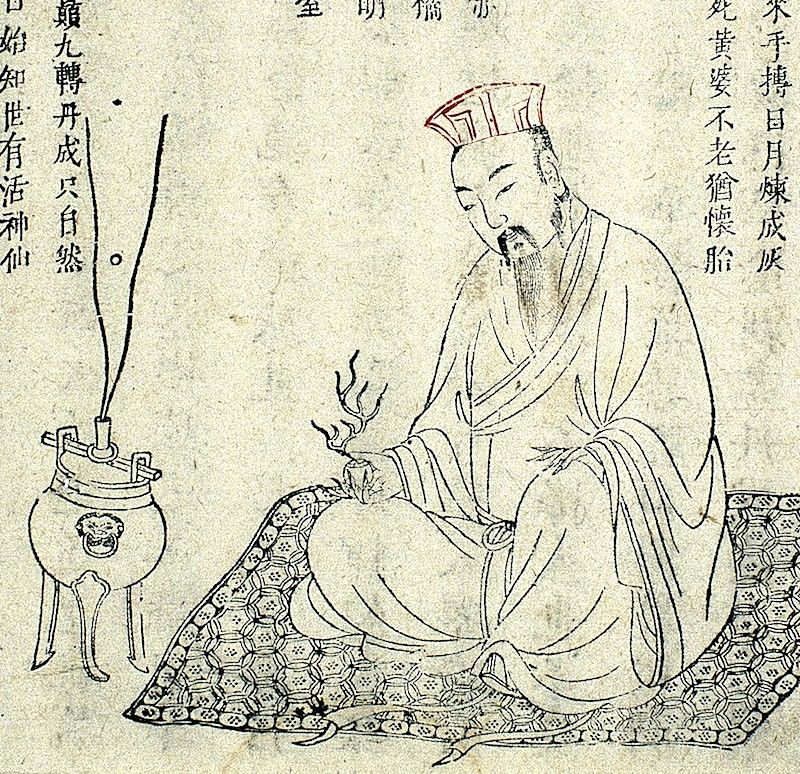 來手摶日月煉成灰
死黄婆不老猶懷胎
明
顛九轉丹成只自然
始知世有活神仙